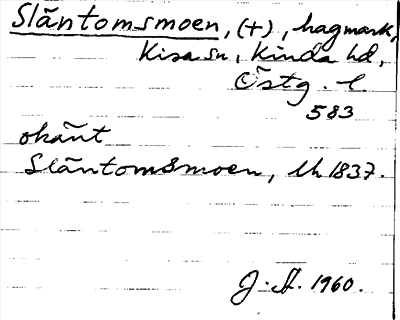 Släntomsmoen, (+), hagmark,
Kisa sn, Kinda hd,
Östg. l
583
okänt
Släntomsmoen, lh 1837.
J. A. 1960.